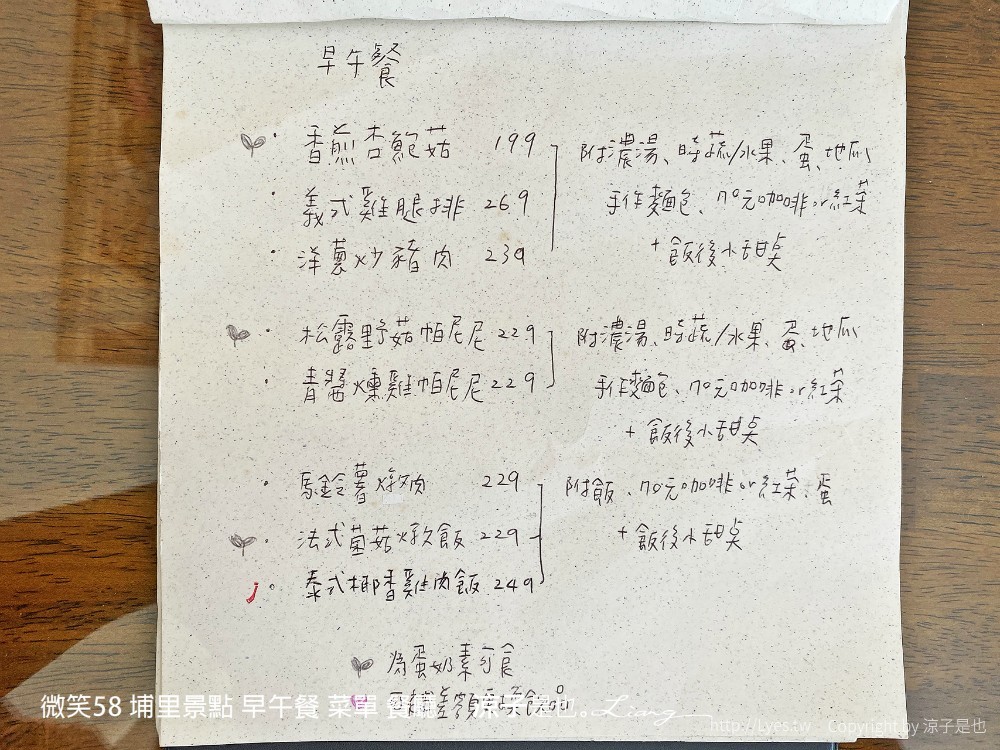 早午餐
香煎杏鮑菇 199
附濃湯、時蔬/水果、蛋、地瓜
義式雞腿排 269
手作麵包、70元咖啡or紅茶
洋蔥炒豬肉 239
+飯後小甜桌
松露野菇帕尼尼 229
附濃湯、時蔬/水果、蛋、地瓜
青醬燻雞帕尼尼 229
手作麵包、70元咖啡or紅茶
+飯後小甜桌
馬鈴薯燉肉 229
附飯、70元咖啡or紅茶、蛋
法式菌菇燉飯 229
+飯後小甜桌
泰式椰香雞肉飯 249
為蛋奶素可食
差額 飲品
微笑58 埔里景點 早午餐 菜單 餐廳 涼子是也。Liang
http://kyes.tw Copyright by 涼子是也